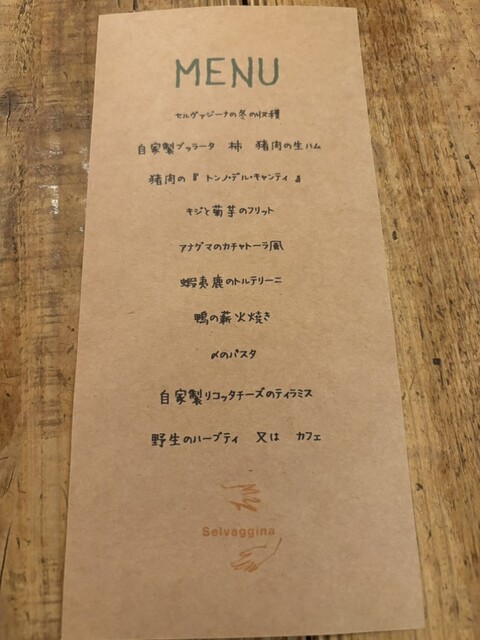 MENU
セルヴァジーナの冬の収穫
自家製ブッラータ 柿 猪肉の生ハム
猪肉の『トンノ・デル・キャンティ』
キジと菊芋のフリット
アナグマのカチャトーラ風
蝦夷鹿のトルテリーニ
鴨の薪火焼き
〆のパスタ
自家製リコッタチーズのティラミス
野生のハーブティ 又は カフェ
Selvaggina